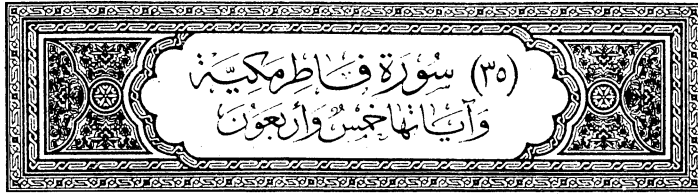 (٣٥) سُورَة فَاطِر مَكِيَّة
وَآيَاتهَا خَمْسٌ وَأَربَعَوُن